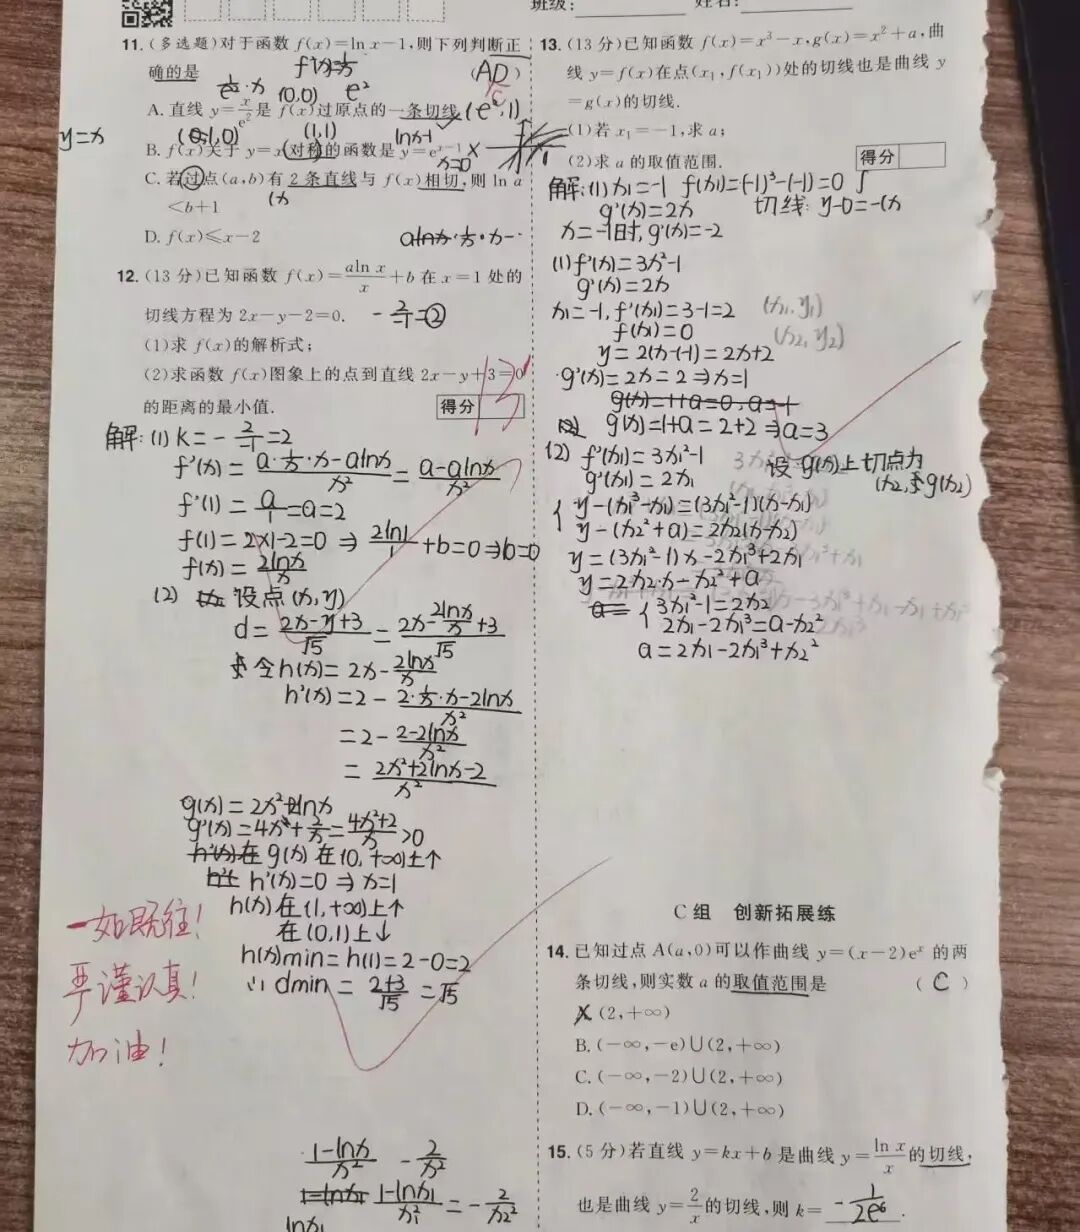 班级:
姓名:
11. (多选题)对于函数 f(x)=ln x-1,则下列判断正
确的是 ( AD )
f'(x)=1/x
(0,0) e²
A. 直线 y=x/e²是 f(x)过原点的一条切线 (e²,1)
y=x
(1,0) (1,1) lnx-1
B. f(x)关于 y=x 对称的函数是 y=e^(x-1) ×
x=0
C. 若过点(a,b)有 2 条直线与 f(x)相切,则 ln a
<b+1
D. f(x)≤x-2
12. (13 分)已知函数 f(x)=aln x/x+b 在 x=1 处的
切线方程为 2x-y-2=0. -2/-1=②
(1)求 f(x)的解析式;
(2)求函数 f(x)图象上的点到直线 2x-y+3=0
的距离的最小值. 得分 13
解:(1) K=-2/-1=2
f'(x)=(a·1/x·x-alnx)/x²=(a-alnx)/x²
f'(1)=a/1=a=2
f(1)=2×1-2=0 ⇒ 2ln1/1+b=0⇒b=0
f(x)=2lnx/x
(2) 设点(x,y)
d=(2x-y+3)/√5=(2x-2lnx/x+3)/√5
令h(x)=2x-2lnx/x
h'(x)=2-(2·1/x·x-2lnx)/x²
=2-(2-2lnx)/x²
=(2x²+2lnx-2)/x²
g(x)=2x²+2lnx
g'(x)=4x+2/x=(4x²+2)/x>0
g(x)在(0,+∞)上↑
h'(x)=0⇒x=1
h(x)在(1,+∞)上↑
在(0,1)上↓
h(x)min=h(1)=2-0=2
∴dmin=(2+3)/√5=√5
一如既往!
严谨认真!
加油!
(1-lnx)/x² -2/x²
(1-lnx₁)/x₁²=-2/x₂²
lnx₁
13. (13 分)已知函数 f(x)=x³-x,g(x)=x²+a,曲
线 y=f(x)在点(x₁,f(x₁))处的切线也是曲线 y
=g(x)的切线.
(1)若 x₁=-1,求 a;
(2)求 a 的取值范围. 得分
解:(1) x₁=-1 f(x₁)=(-1)³-(-1)=0
g'(x)=2x 切线:y-0=-(x
x=-1时,g'(x)=-2
(1) f'(x)=3x²-1
g'(x)=2x
x₁=-1,f'(x₁)=3-1=2 (x₁,y₁)
f(x₁)=0 (x₂,y₂)
y=2(x-(-1))=2x+2
g'(x)=2x=2⇒x=1
g(x)=1+a=0,a=-1
g(x)=1+a=2+2⇒a=3
(2) f'(x₁)=3x₁²-1 设g(x)上切点为
g'(x₁)=2x₁ (x₂,g(x₂)
{ y-(x₁³-x₁)=(3x₁²-1)(x-x₁)
y-(x₂²+a)=2x₂(x-x₂)
y=(3x₁²-1)x-2x₁³+2x₁
y=2x₂·x-x₂²+a
{ 3x₁²-1=2x₂
2x₁-2x₁³=a-x₂²
a=2x₁-2x₁³+x₂²
C 组 创新拓展练
14. 已知过点 A(a,0)可以作曲线 y=(x-2)eˣ 的两
条切线,则实数 a 的取值范围是 ( C )
A. (2,+∞)
B. (-∞,-e)∪(2,+∞)
C. (-∞,-2)∪(2,+∞)
D. (-∞,-1)∪(2,+∞)
15. (5 分)若直线 y=kx+b 是曲线 y=ln x/x的切线,
也是曲线 y=2/x的切线,则 k= -1/2e⁶ .